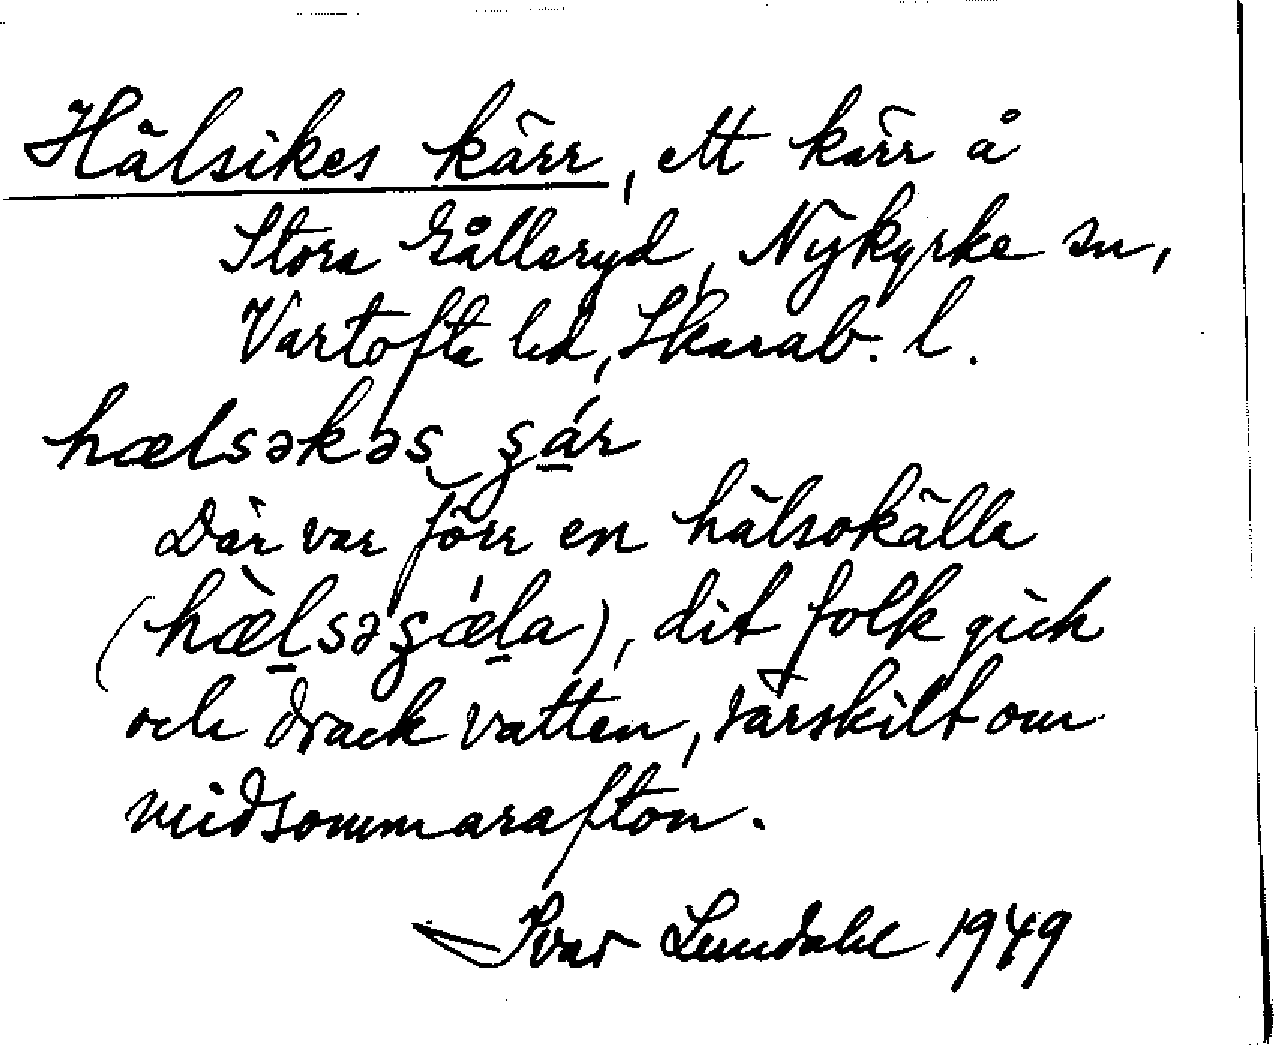 Hälsikes kärr, ett kärr å
Stora Gålleryd, Nykyrke sn,
Vartofta hd, Skarab. l.
hælsəkəs
Där var förr en hälsokälla
dit folk gick
och drack vatten, särskilt om
midsommarafton.
Ivar Lundahl 1949